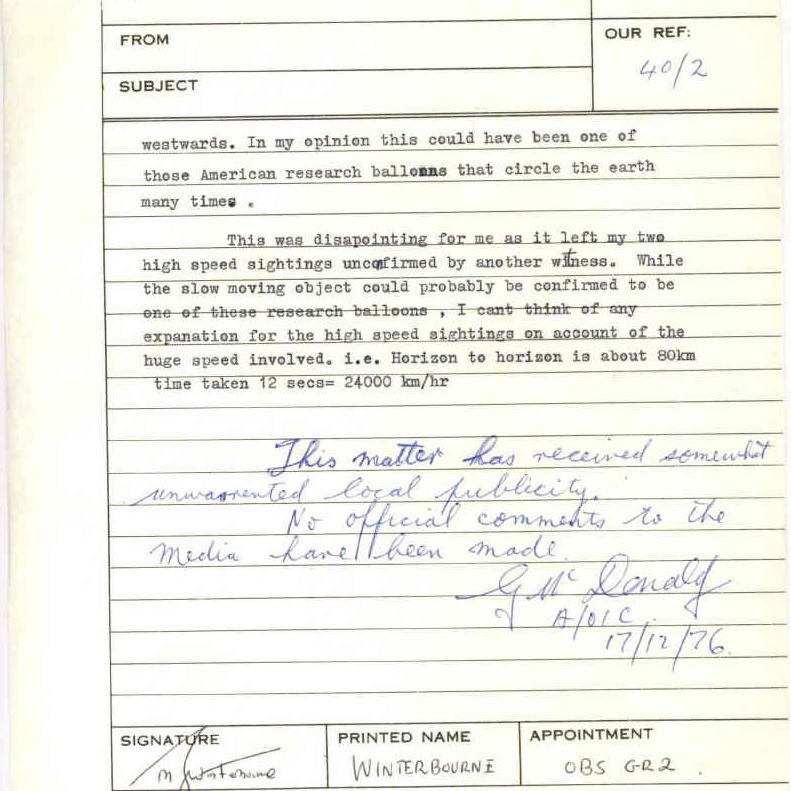 FROM
OUR REF:
40/2
SUBJECT
westwards. In my opinion this could have been one of
those American research balloons that circle the earth
many times .
This was disapointing for me as it left my two
high speed sightings unconfirmed by another witness. While
the slow moving object could probably be confirmed to be
one of these research balloons , I cant think of any
expanation for the high speed sightings on account of the
huge speed involved. i.e. Horizon to horizon is about 80km
time taken 12 secs= 24000 km/hr
This matter has received somewhat
unwarrented local publicity.
No official comments to the
Media have been made.
G Mc Donald
A/OIC.
17/12/76.
SIGNATURE
PRINTED NAME
APPOINTMENT
M Winterbourne
WINTERBOURNE
OBS GR2 .